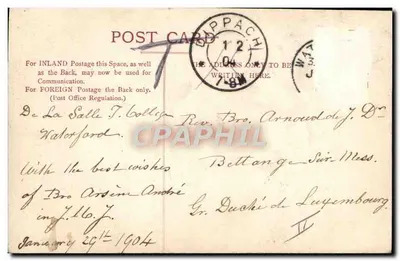 POST CARD
For INLAND Postage this Space, as well
as the Back, may now be used for
Communication.
For FOREIGN Postage the Back only.
(Post Office Regulation.)
THE ADDRESS ONLY TO BE
WRITTEN HERE.
DIPPACH
12
04
7-8
WA
De La Salle T. College
Waterford
With the best wishes
of Bro Arsène André
in J. M. J.
January 29th 1904
Rev. Bro. Arnould de J. Dr
Bettange Sur Mess.
Gr. Duché de Luxembourg
CPAPHIL